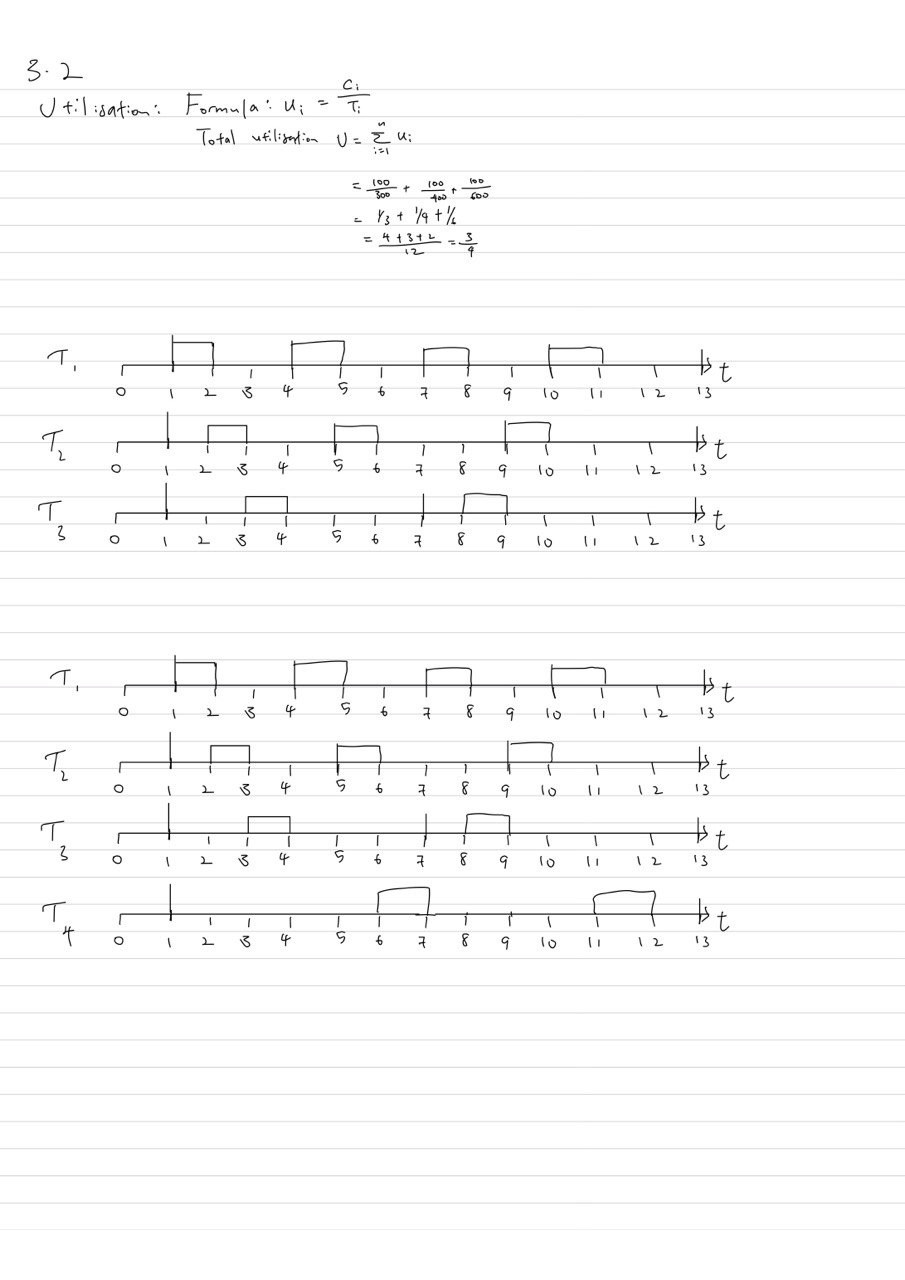 3.2
Utilisation: Formula: u_i = C_i / T_i
Total utilisation U = Σ_{i=1}^{n} u_i
= 100/300 + 100/400 + 100/600
= 1/3 + 1/4 + 1/6
= (4+3+2)/12 = 3/4
T1 t
0 1 2 3 4 5 6 7 8 9 10 11 12 13
T2 t
0 1 2 3 4 5 6 7 8 9 10 11 12 13
T3 t
0 1 2 3 4 5 6 7 8 9 10 11 12 13
T1 t
0 1 2 3 4 5 6 7 8 9 10 11 12 13
T2 t
0 1 2 3 4 5 6 7 8 9 10 11 12 13
T3 t
0 1 2 3 4 5 6 7 8 9 10 11 12 13
T4 t
0 1 2 3 4 5 6 7 8 9 10 11 12 13